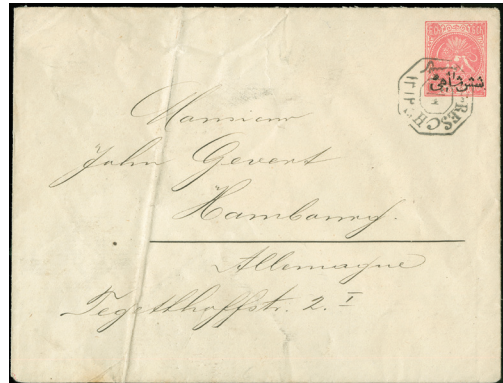 شش شاهی
RESCHT
Monsieur
John Gevert
Hambourg.
Allemagne
Tegetthoffstr. 2. I